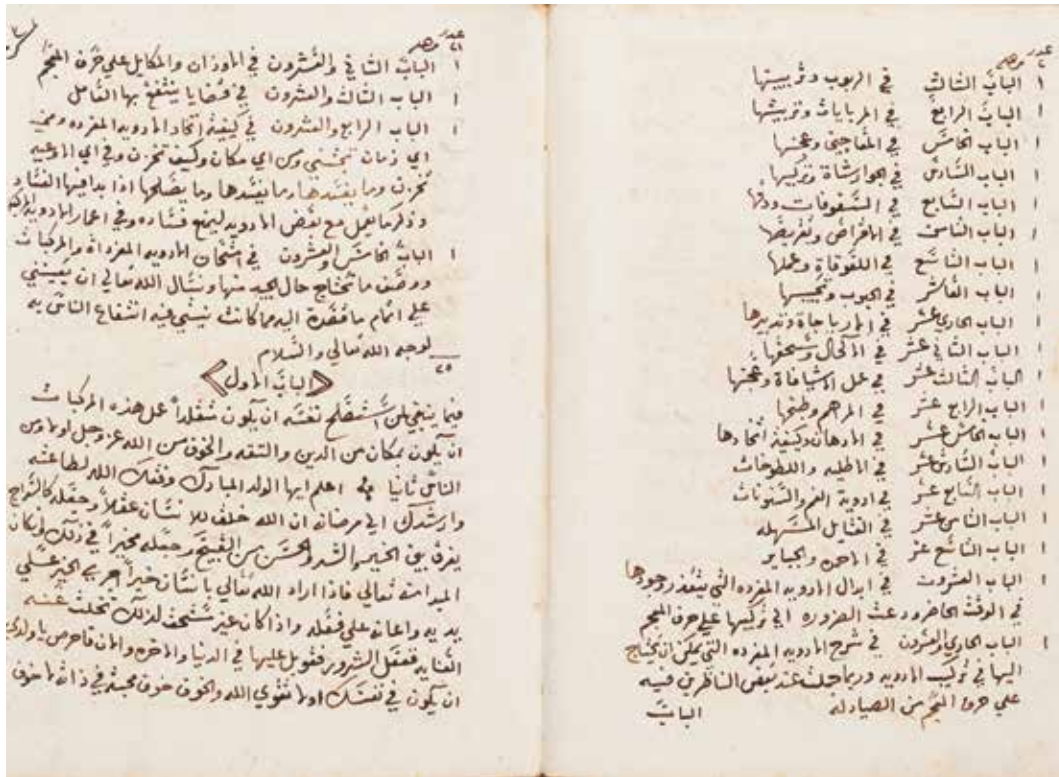 عدد
١ الباب الثالث في الربوب وتربيتها
١ الباب الرابع في المربايات وتربيتها
١ الباب الخامس في المعاجين وعجنها
١ الباب السادس في الجوارشاة وتركيبها
١ الباب السابع في السفوفات ودقها
١ الباب الثامن في الاقراص وتقريصها
١ الباب التاسع في اللعوقاة وعملها
١ الباب العاشر في الحبوب وتحبيبها
١ الباب الحادي عشر في المرباجاة وتدبيرها
١ الباب الثاني عشر في الاكحال وسحقها
١ الباب الثالث عشر في عمل الاشيافاة وعجنها
١ الباب الرابع عشر في المراهم وطبخها
١ الباب الخامس عشر في الادهان وكيفية اتخادها
١ الباب السادس عشر في الاطليه واللطوخات
١ الباب السابع عشر في ادوية الفم والسنونات
١ الباب الثامن عشر في الفتايل المسهله
١ الباب التاسع عشر في والجباير
١ الباب العشرون في ابدال الادويه المفرده التي يتعذر وجودها
في الوقت الحاضر عند الضروره الي تركيبها علي حرف المعجم
١ الباب الحادي والعشرون في شرح الادويه المفرده التي يمكن ان يحتاج
اليها في تركيب الادويه وربما جهلت عند بعض الناظرين فيه
علي حروف المعجم من الصيادله الباب
عدد
٢١
١ الباب الثاني والعشرون في الاوزان والمكايل علي حرف المعجم
١ الباب الثالث والعشرون في قضايا ينتفع بها التامل
١ الباب الرابع والعشرون في كيفية اتخاد الادويه المفرده ومن
اي زمان تجتني ومن اي مكان وكيف تخزن وفي اي الاوعيه
تخزن وما يفسدها وما يصلحها اذا بدا فيها الفساد
وذكر ما يعمل مع بعض الادويه ليمنع فساده وفي اعمار الادويه
١ الباب الخامس والعشرون في امتحان الادويه المفرداة والمركبات
ووصف ما تحتاج حال الجيد منها ونسال الله تعالي ان يعينني
علي اتمام ما قصدة اليه مما كانت نيتي فيه انتفاع الناس به
لوجه الله تعالي والسلام
٢٥
الباب الاول
فيما ينبغي لمن استصلح نفسه ان يكون متقلداً عمل هذه المركبات
ان يكون بمكان من الدين والثقه والخوف من الله عز وجل اولا ومن
الناس ثانيا اعلم ايها الولد المبارك وفقك الله لطاعته
وارشدك الي مرضاته ان الله خلق للانسان عقلاً وجعله كالسراج
يفرق بين الخير والشر والحسن من القبيح وجعله مخيراً في ذلك وكان
الميل منه تعالي فاذا اراد الله تعالي بانسان خيراً اجري الخير علي
يديه واعانه علي فعله واذا كان غير مستحق لذلك تخلت عنه
العنايه ففعل الشرور فعوقب عليها في الدنيا والاخره والان فاحرص يا ولدي
ان يكون في نفسك اولا تقوي الله والخوف خوف محبه في ذاته لا خوف